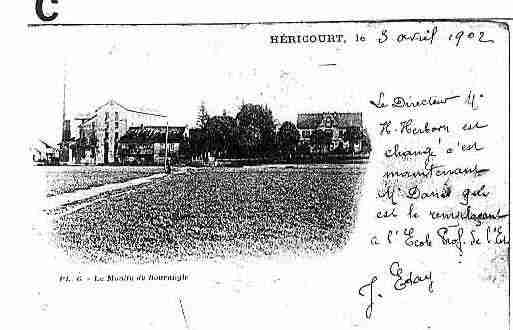 C
HÉRICOURT, le 3 avril 1902
Le Directeur Mr
H. Herborn est
changé c'est
maintenant
Mr
est le remplaçant
à l'Ecole Prof. de l'Est
Pl. 6 - Le Moulin de Bourangle
J.